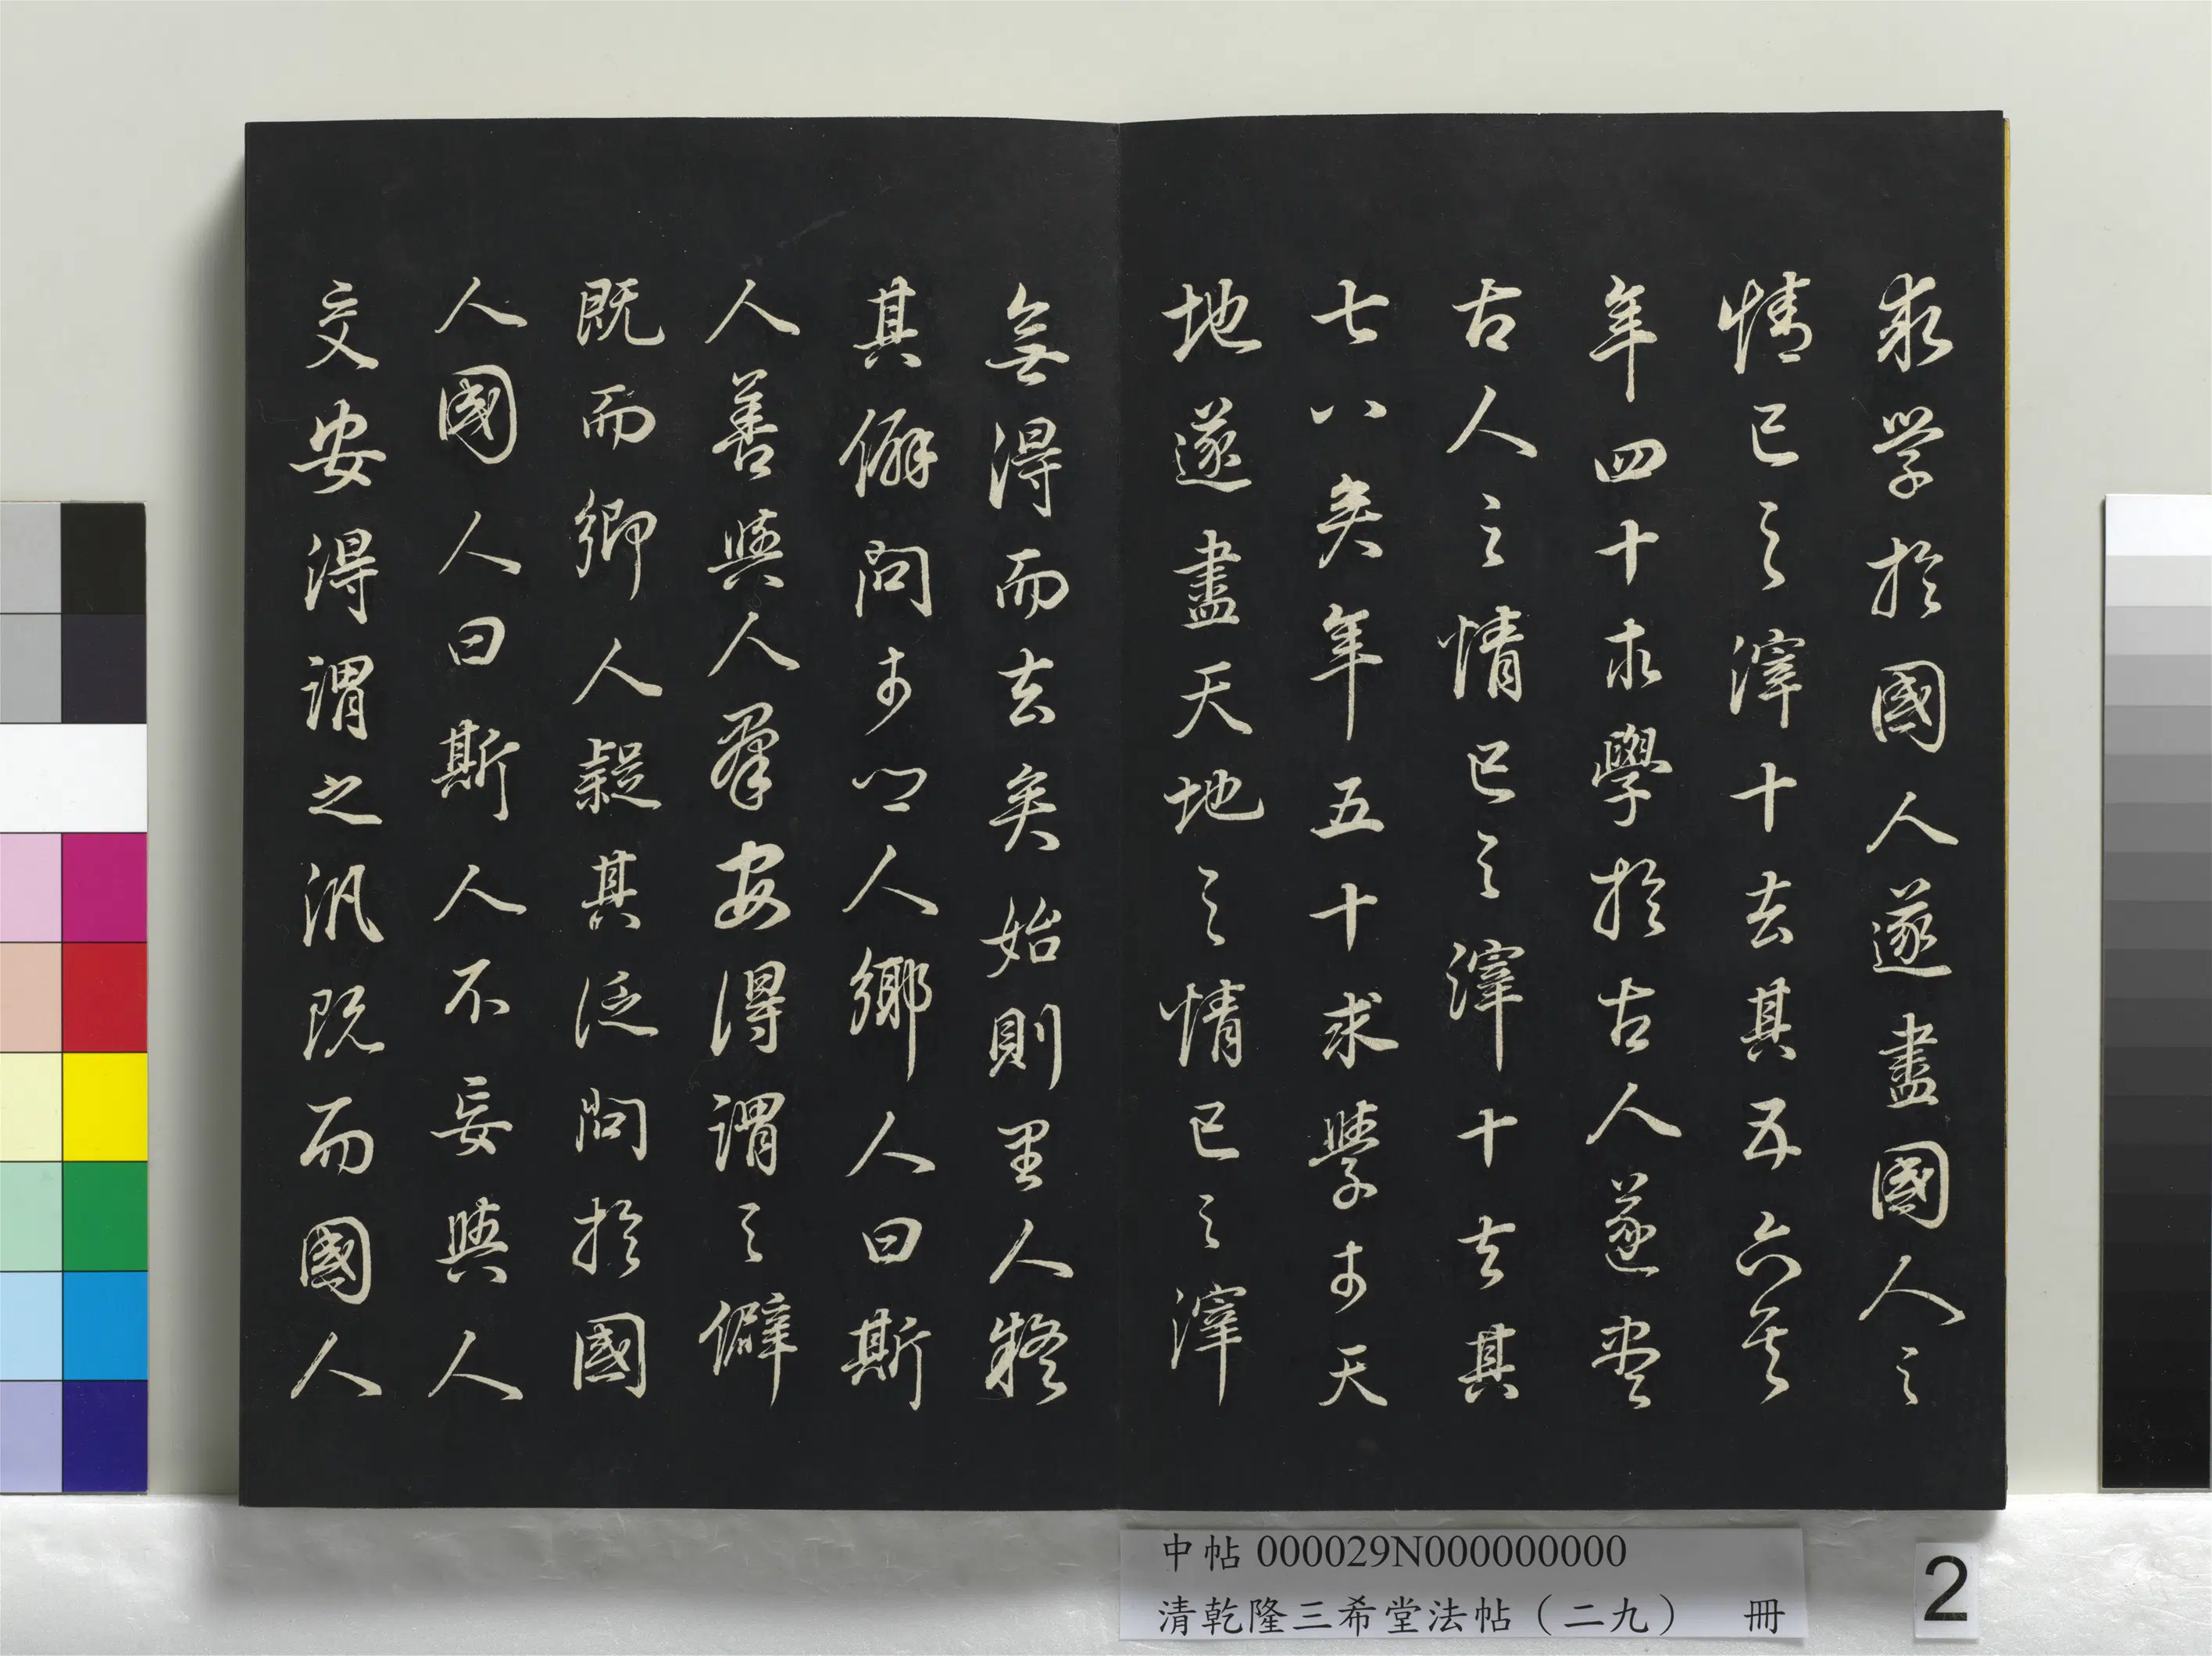 求學於國人遂盡國人之
情己之滓十去其五六矣
年四十求學於古人遂盡
古人之情己之滓十去其
七八矣年五十求學於天
地遂盡天地之情己之滓
無得而去矣始則里人疑
其僻問於鄉人鄉人曰斯
人善與人羣安得謂之僻
既而鄉人疑其泛問於國
人國人曰斯人不妄與人
交安得謂之汎既而國人
中帖 000029N000000000
清乾隆三希堂法帖（二九） 冊
2